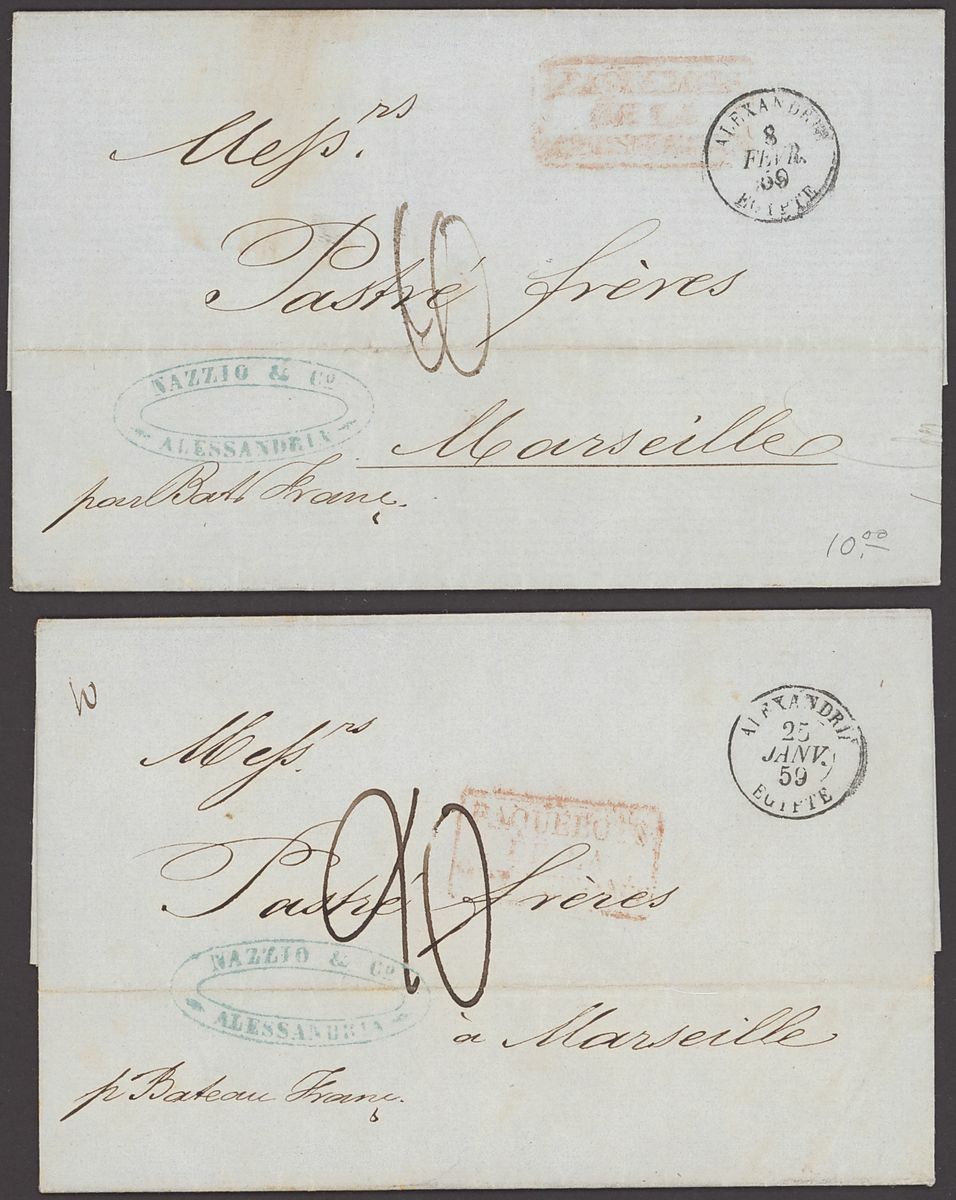 Mess.rs
PAQUEBOTS
DE LA
ALEXANDRIE
8
FEVR.
59
EGYPTE
60
Pastré frères
NAZZIO & Co
ALESSANDRIA
Marseille
par Bat. Franç.
10.00
ALEXANDRIE
25
JANV.
59
EGYPTE
Mess.rs
90
PAQUEBOTS
DE LA
Pastré frères
NAZZIO & Co
ALESSANDRIA
à Marseille
pr Bateau Franç.